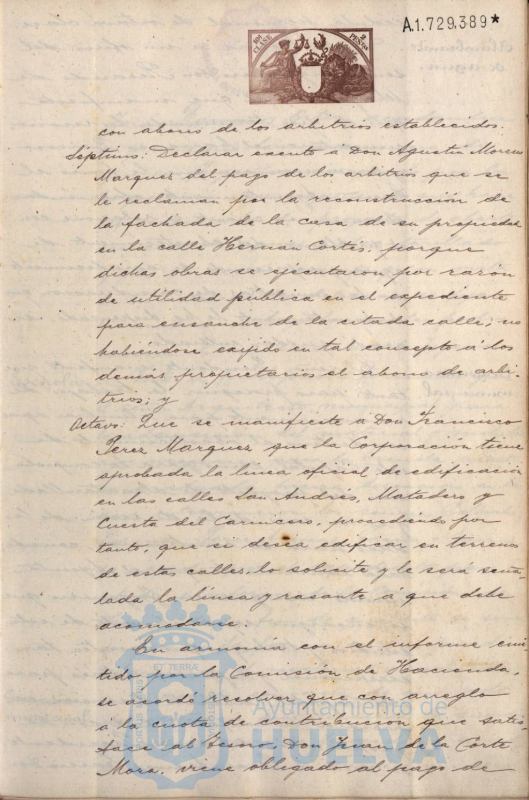 A.1.729.389*
10ª CLASE
2 PESETAS
con abono de los arbitrios establecidos.
Séptimo: Declarar exento á Don Agustín Moreno
Marquez del pago de los arbitrios que se
le reclaman por la reconstrucción de
la fachada de la casa de su propiedad
en la calle Hernán Cortés, porque
dichas obras se ejecutaron por razón
de utilidad pública en el expediente
para ensanche de la citada calle; no
habiéndose exijido en tal concepto á los
demás propietarios el abono de arbi-
trios; y
Octavo: Que se manifieste á Don Francisco
Perez Marquez que la Corporación tiene
aprobada la linea oficial de edificación
en las calles San Andrés, Matadero y
Cuesta del Carnicero, procediendo por
tanto, que si desea edificar en terrenos
de estas calles, lo solicite y le será seña-
lada la linea y rasante á que debe
acomodarse.
En armonía con el informe emi-
tido por la Comisión de Hacienda,
se acordó resolver que con arreglo
á la cuota de contribución que satis-
face al Tesoro, Don Juan de la Corte
Mora, viene obligado al pago de
ET TERRÆ
Ayuntamiento de
HUELVA